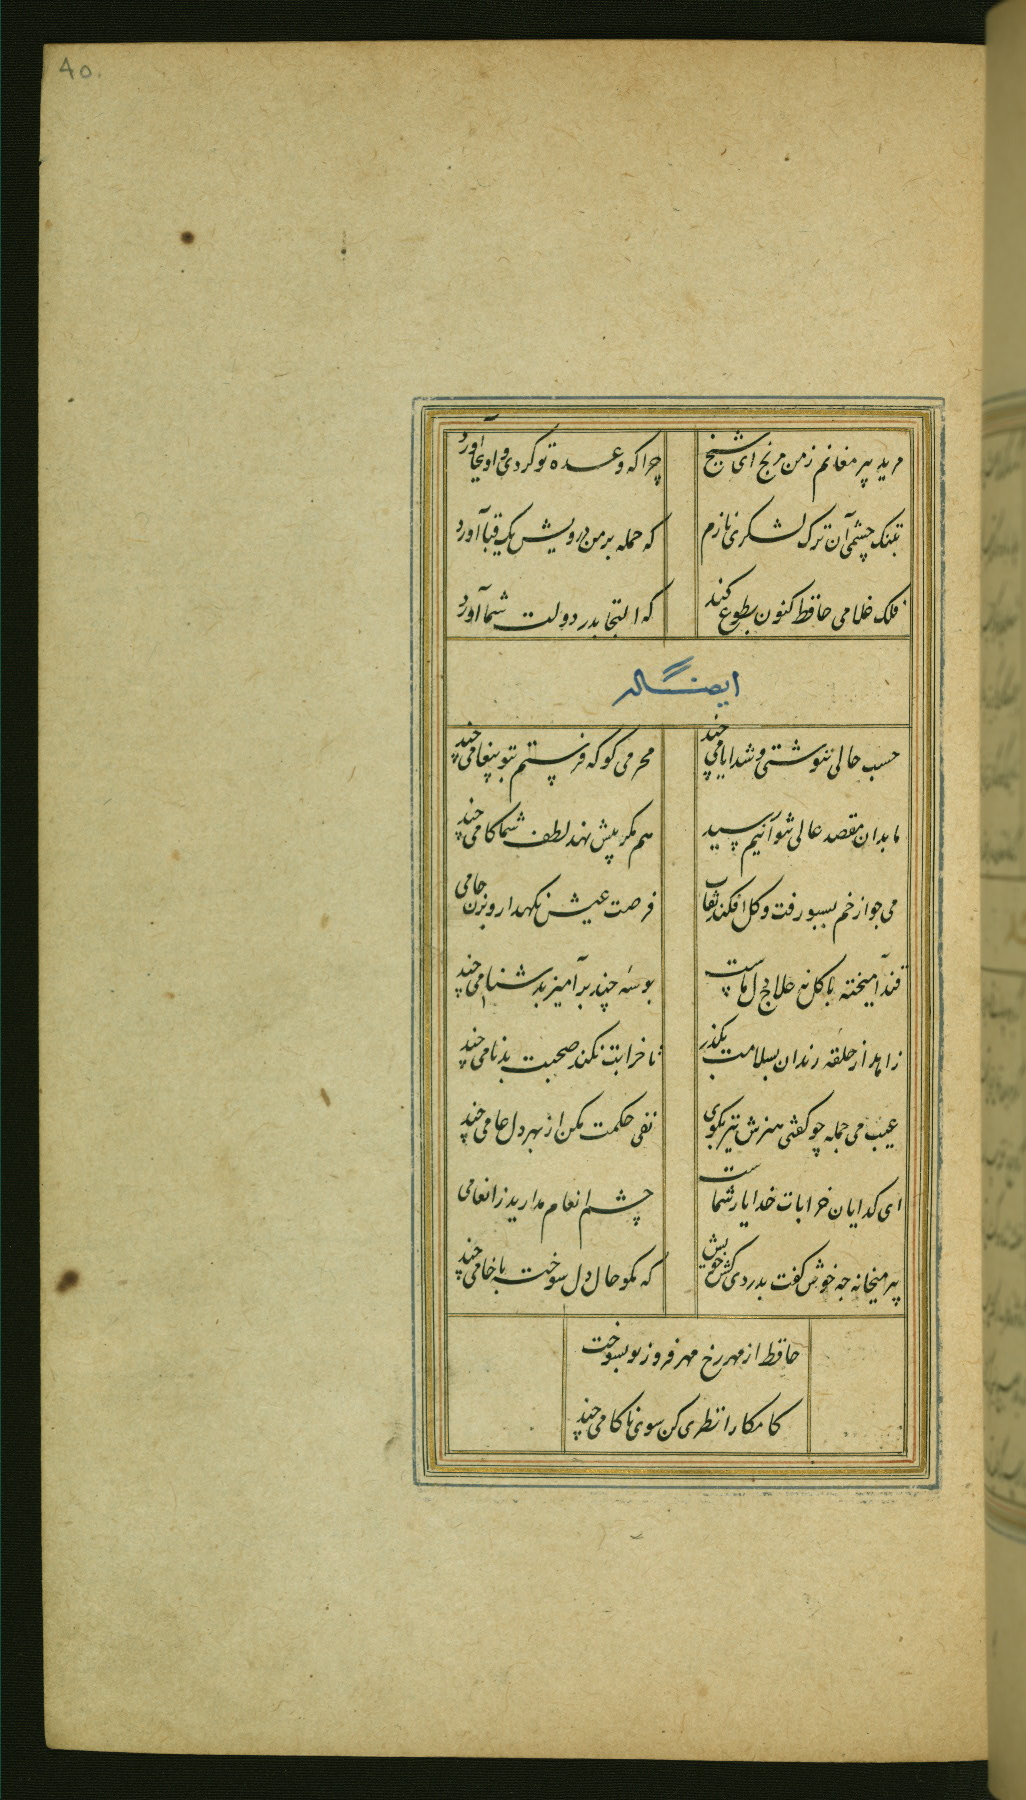 40.
مرید پیر مغانم ز من مرنج ای شیخ چرا که وعده تو کردی و او بجا آورد
بتنک چشمی آن ترک لشکری نازم که حمله بر من درویش یک قبا آورد
فلک غلامی حافظ کنون بطوع کند که التجا بدر دولت شما آورد
ایضاله
حسب حالی ننوشتی و شد ایامی چند محرمی کو که فرستم بتو پیغامی چند
ما بدان مقصد عالی نتوانیم رسید هم مکر پیش نهد لطف شما کامی چند
می جو از خم بسبو رفت و کل افکند نقاب فرصت عیش نکهدار و بزن جامی
قند آمیخته با کل نه علاج دل ماست بوسهٔ چند برآمیز بدشنامی چند
زاهد از حلقهٔ رندان بسلامت بکذر تا خرابت نکند صحبت بدنامی چند
عیب می جمله چو کفتی هنرش نیز بکوی نفی حکمت مکن از بهر دل عامی چند
ای کدایان خرابات خدا یار شماست چشم انعام مدارید ز انعامی
پیر میخانه جه خوش کفت بدردی کش خویش که مکو حال دل سوخته با خامی چند
حافظ از مهر رخ مهر فروز تو بسوخت
کامکارا نظری کن سوی ناکامی چند